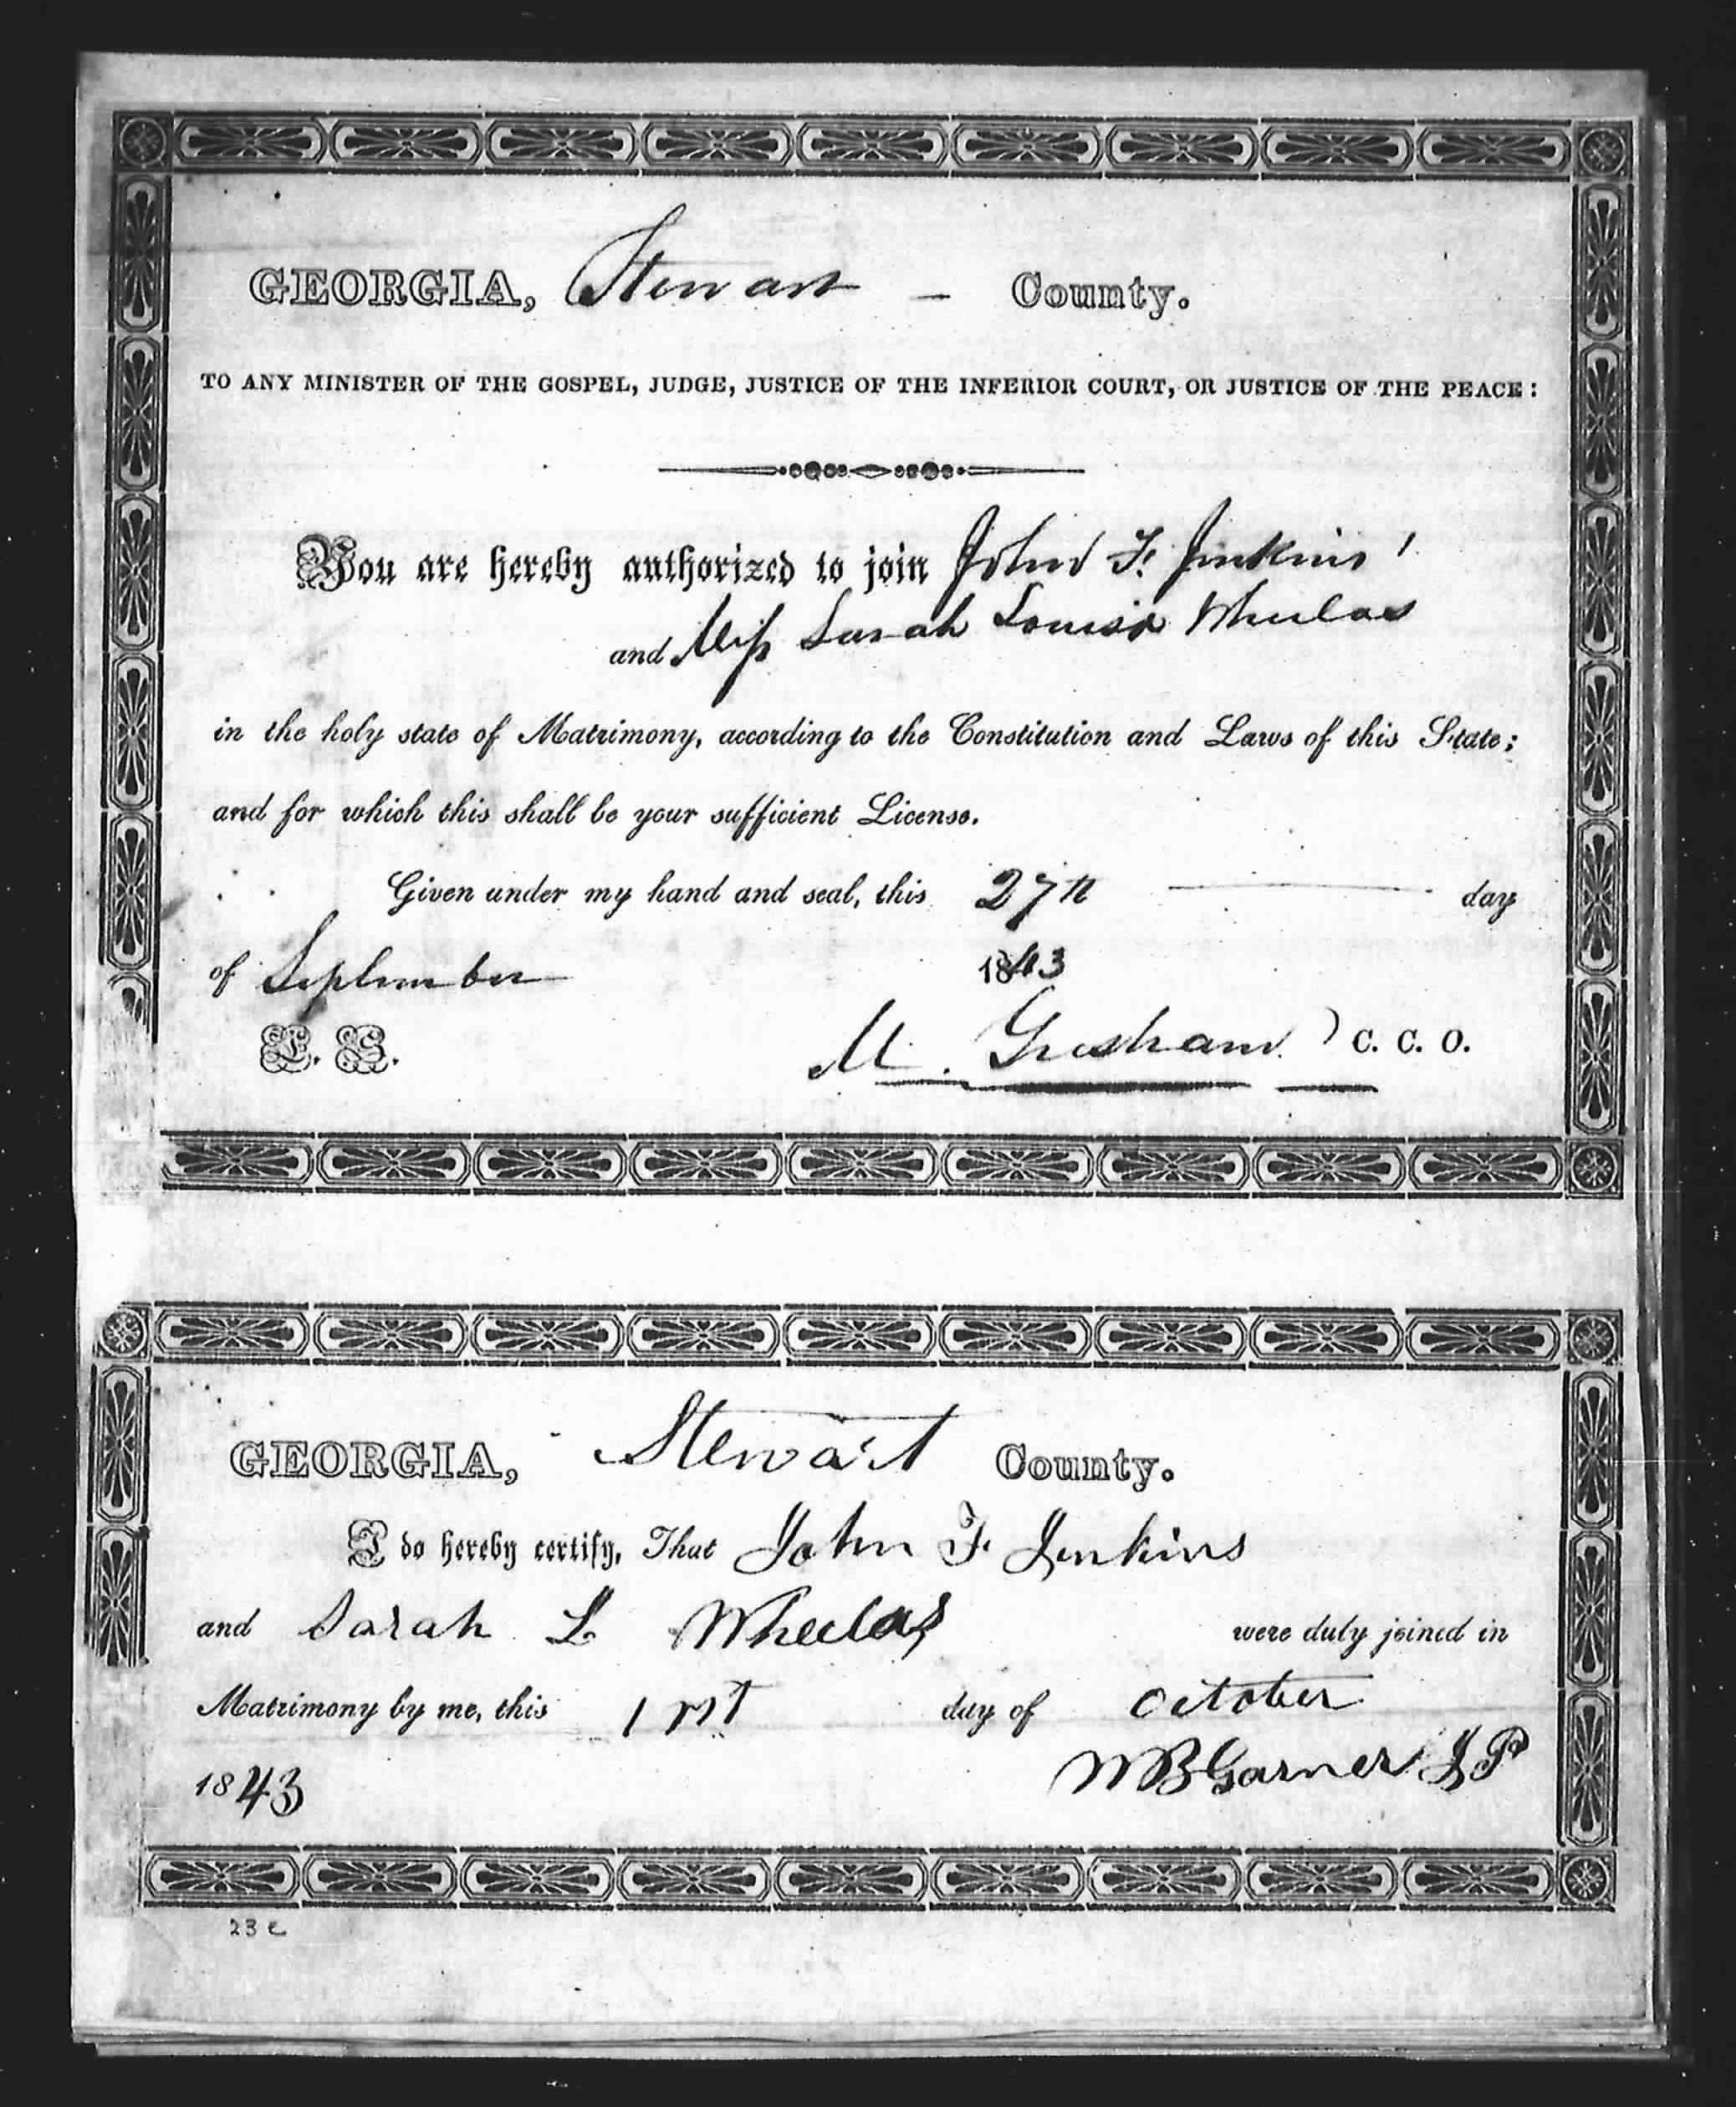 GEORGIA, Stewart – County.
TO ANY MINISTER OF THE GOSPEL, JUDGE, JUSTICE OF THE INFERIOR COURT, OR JUSTICE OF THE PEACE:
You are hereby authorized to join John F. Jenkins
and Miss Sarah Louisa Wheelas
in the holy state of Matrimony, according to the Constitution and Laws of this State;
and for which this shall be your sufficient License.
Given under my hand and seal, this 27th day
of September 1843
L. S. M. Gresham C. C. O.
GEORGIA, Stewart County.
I do hereby certify, That John F. Jenkins
and Sarah L Wheelas were duly joined in
Matrimony by me, this 1st day of October
1843 W B Garner J P